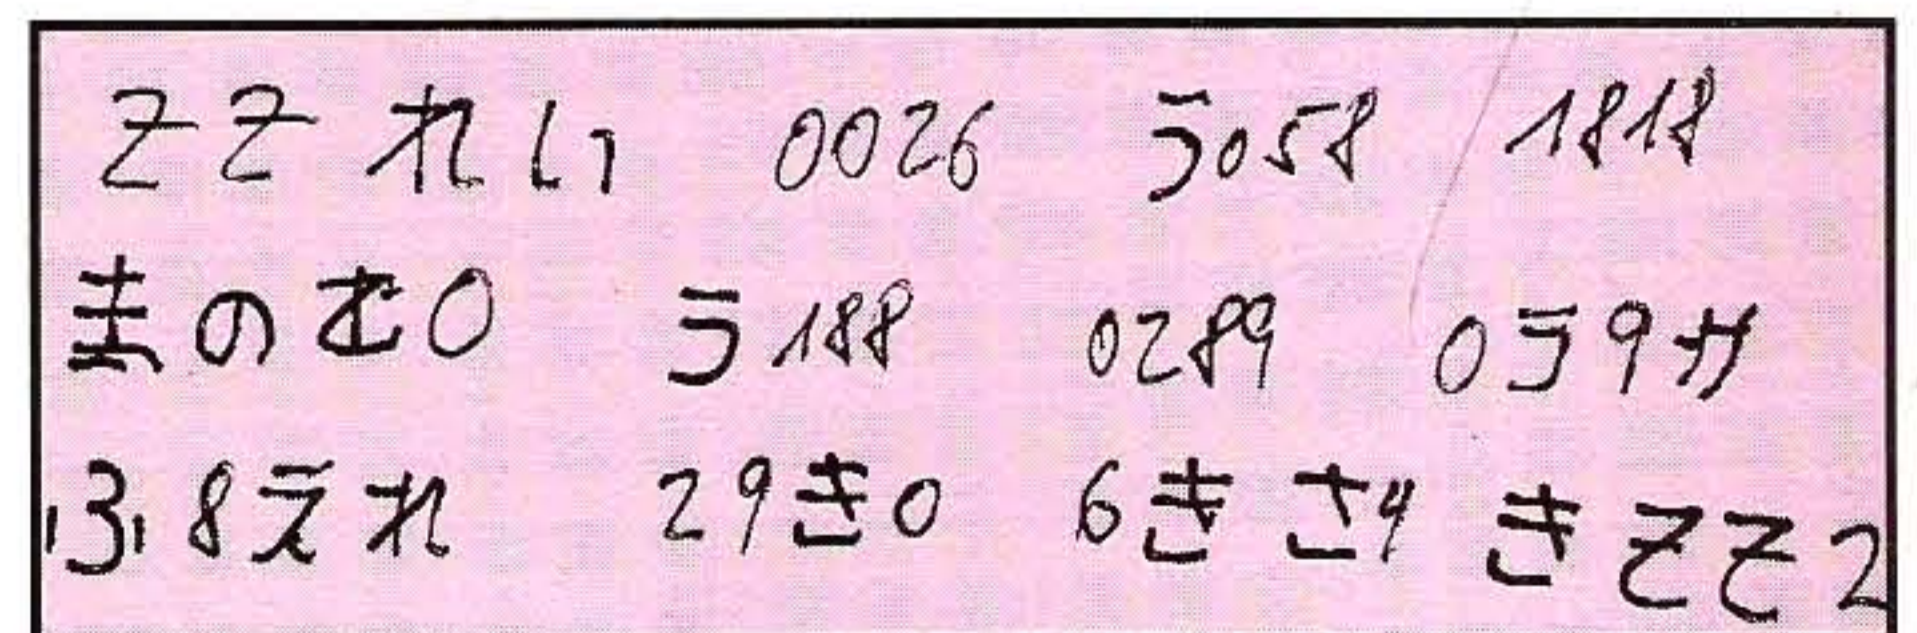 そそれい 0026 う058 1818
まのむ0 う188 0289 0う9サ
ふ8えれ 29き0 6きさ4 きそそ2